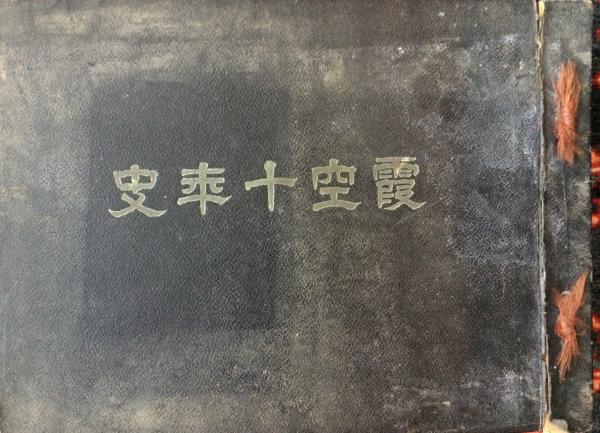 霞空十年史